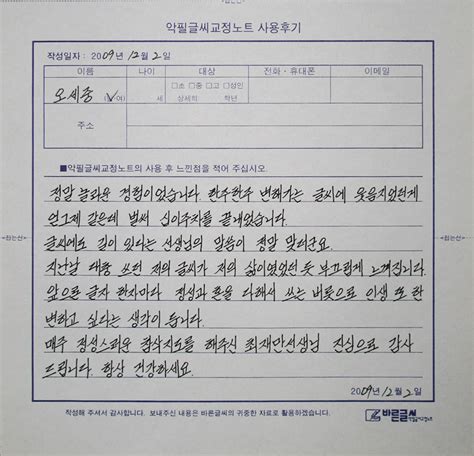 악필글씨교정노트 사용후기
작성일자 : 2009년 12월 2일
이름 나이 대상 전화 · 휴대폰 이메일
오세중 (✓/여) 세 □초 □중 □고 □성인
상세의 학년
주소
■악필글씨교정노트의 사용 후 느낀점을 적어 주십시오.
정말 놀라운 경험이었습니다. 한주한주 변해가는 글씨에 웃음지었던게
언그제 같은데 벌써 십이주차를 끝내었습니다.
글씨에도 길이 있다는 선생님의 말씀이 정말 맞더군요.
지난날 대충 쓰던 저의 글씨가 저의 삶이였었던 듯 부끄럽게 느껴집니다.
앞으론 글자 한자마다 정성과 혼을 다해서 쓰는 버릇으로 인생 또한
변하고 싶다는 생각이 듭니다.
매주 정성스러운 첨삭지도를 해주신 최재만선생님 진심으로 감사
드립니다. 항상 건강하세요.
2009년 12월 2일
작성해 주셔서 감사합니다. 보내주신 내용은 바른글씨의 귀중한 자료로 활용하겠습니다.
바른글씨
-접는선-
-접는선-